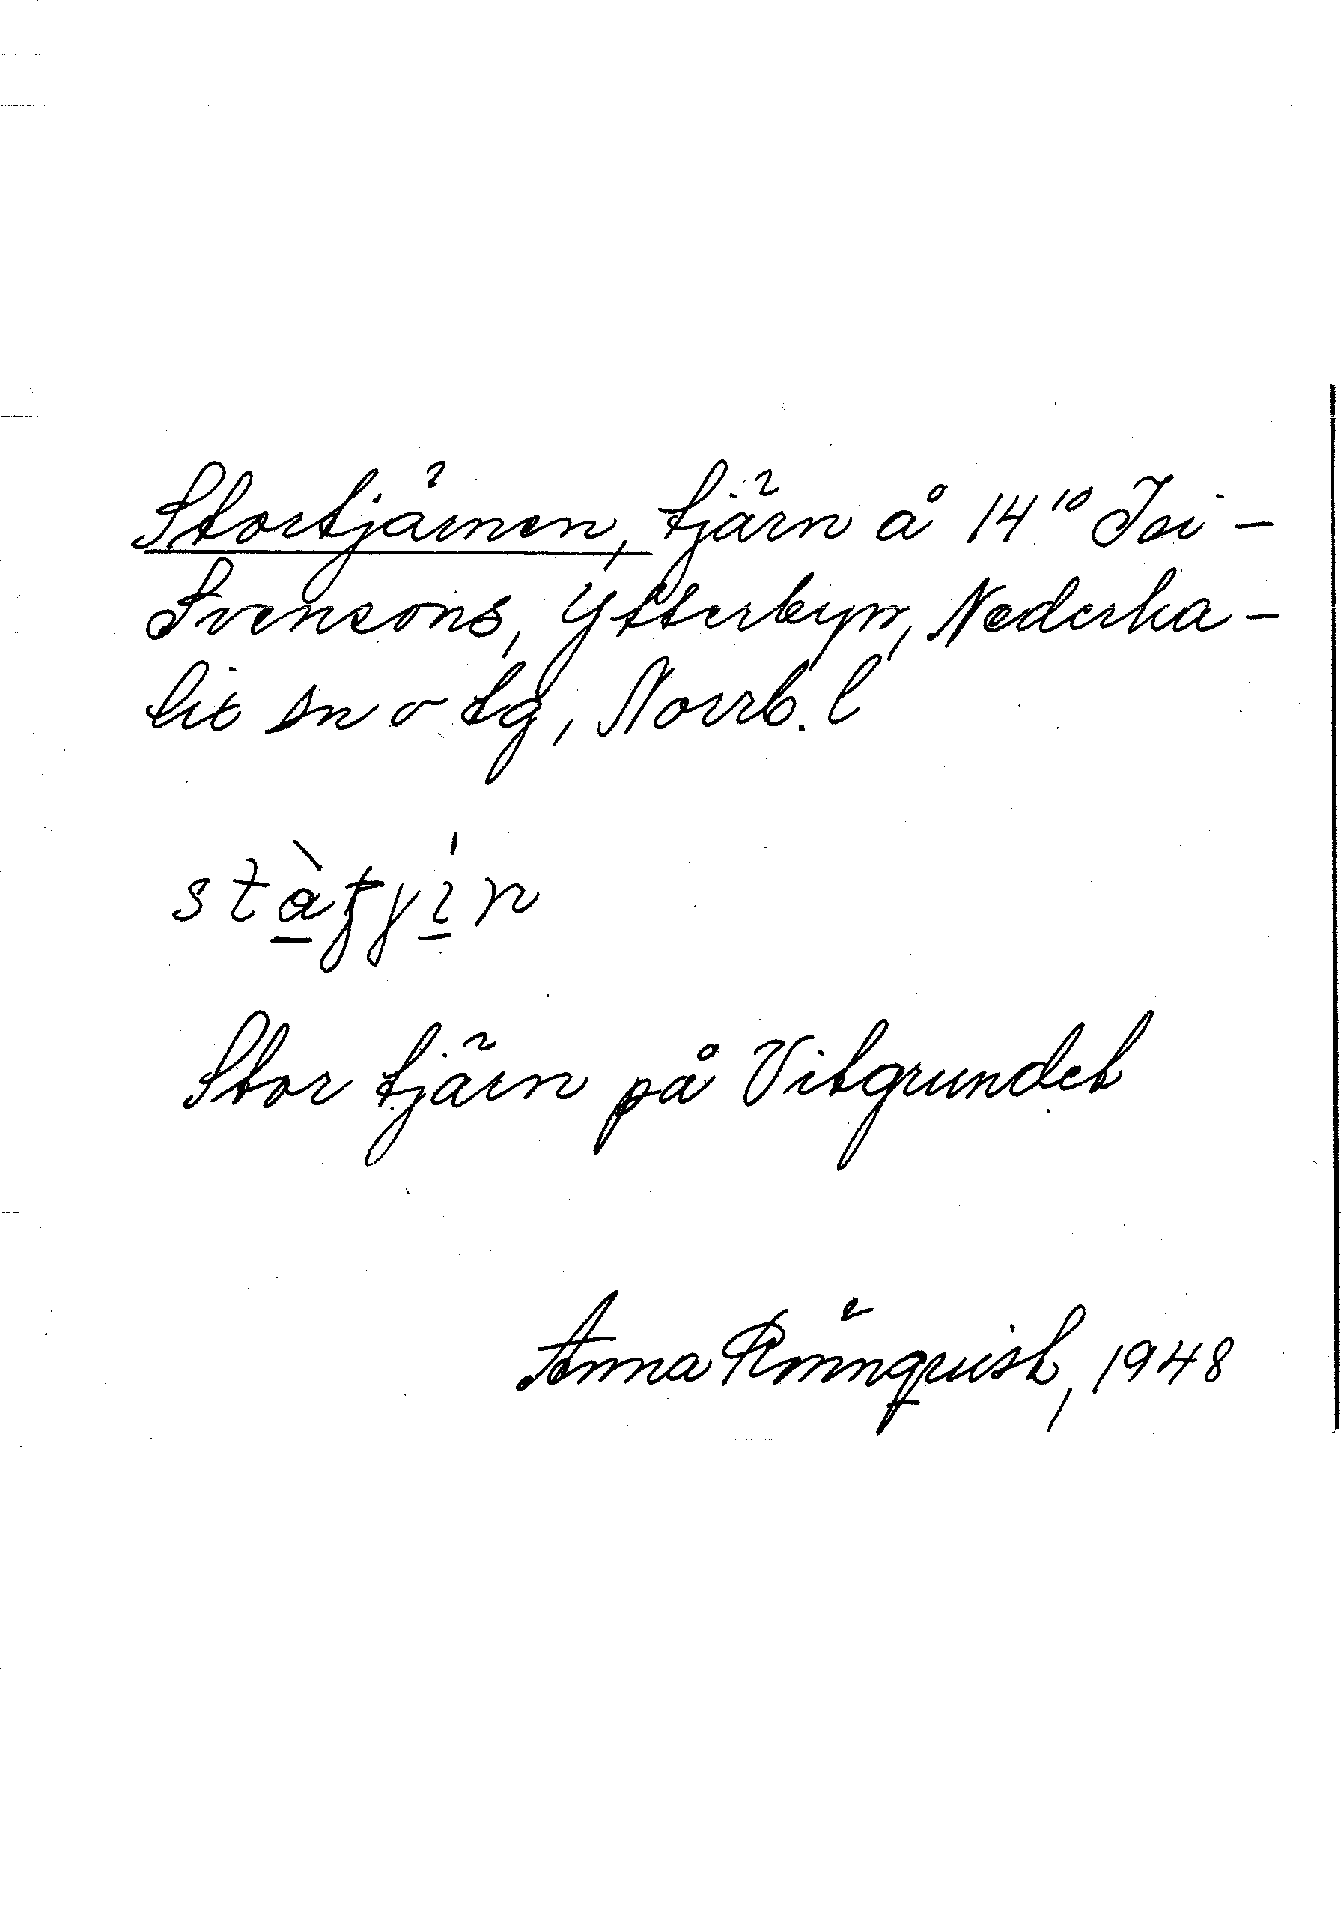 Stortjärnen, tjärn å 14¹⁰ Isi-
Svensons, Ytterbyn, Nederka-
lix sn o tg, Norrb. l
Stor tjärn på Vitgrundet
Anna Rönnquist, 1948